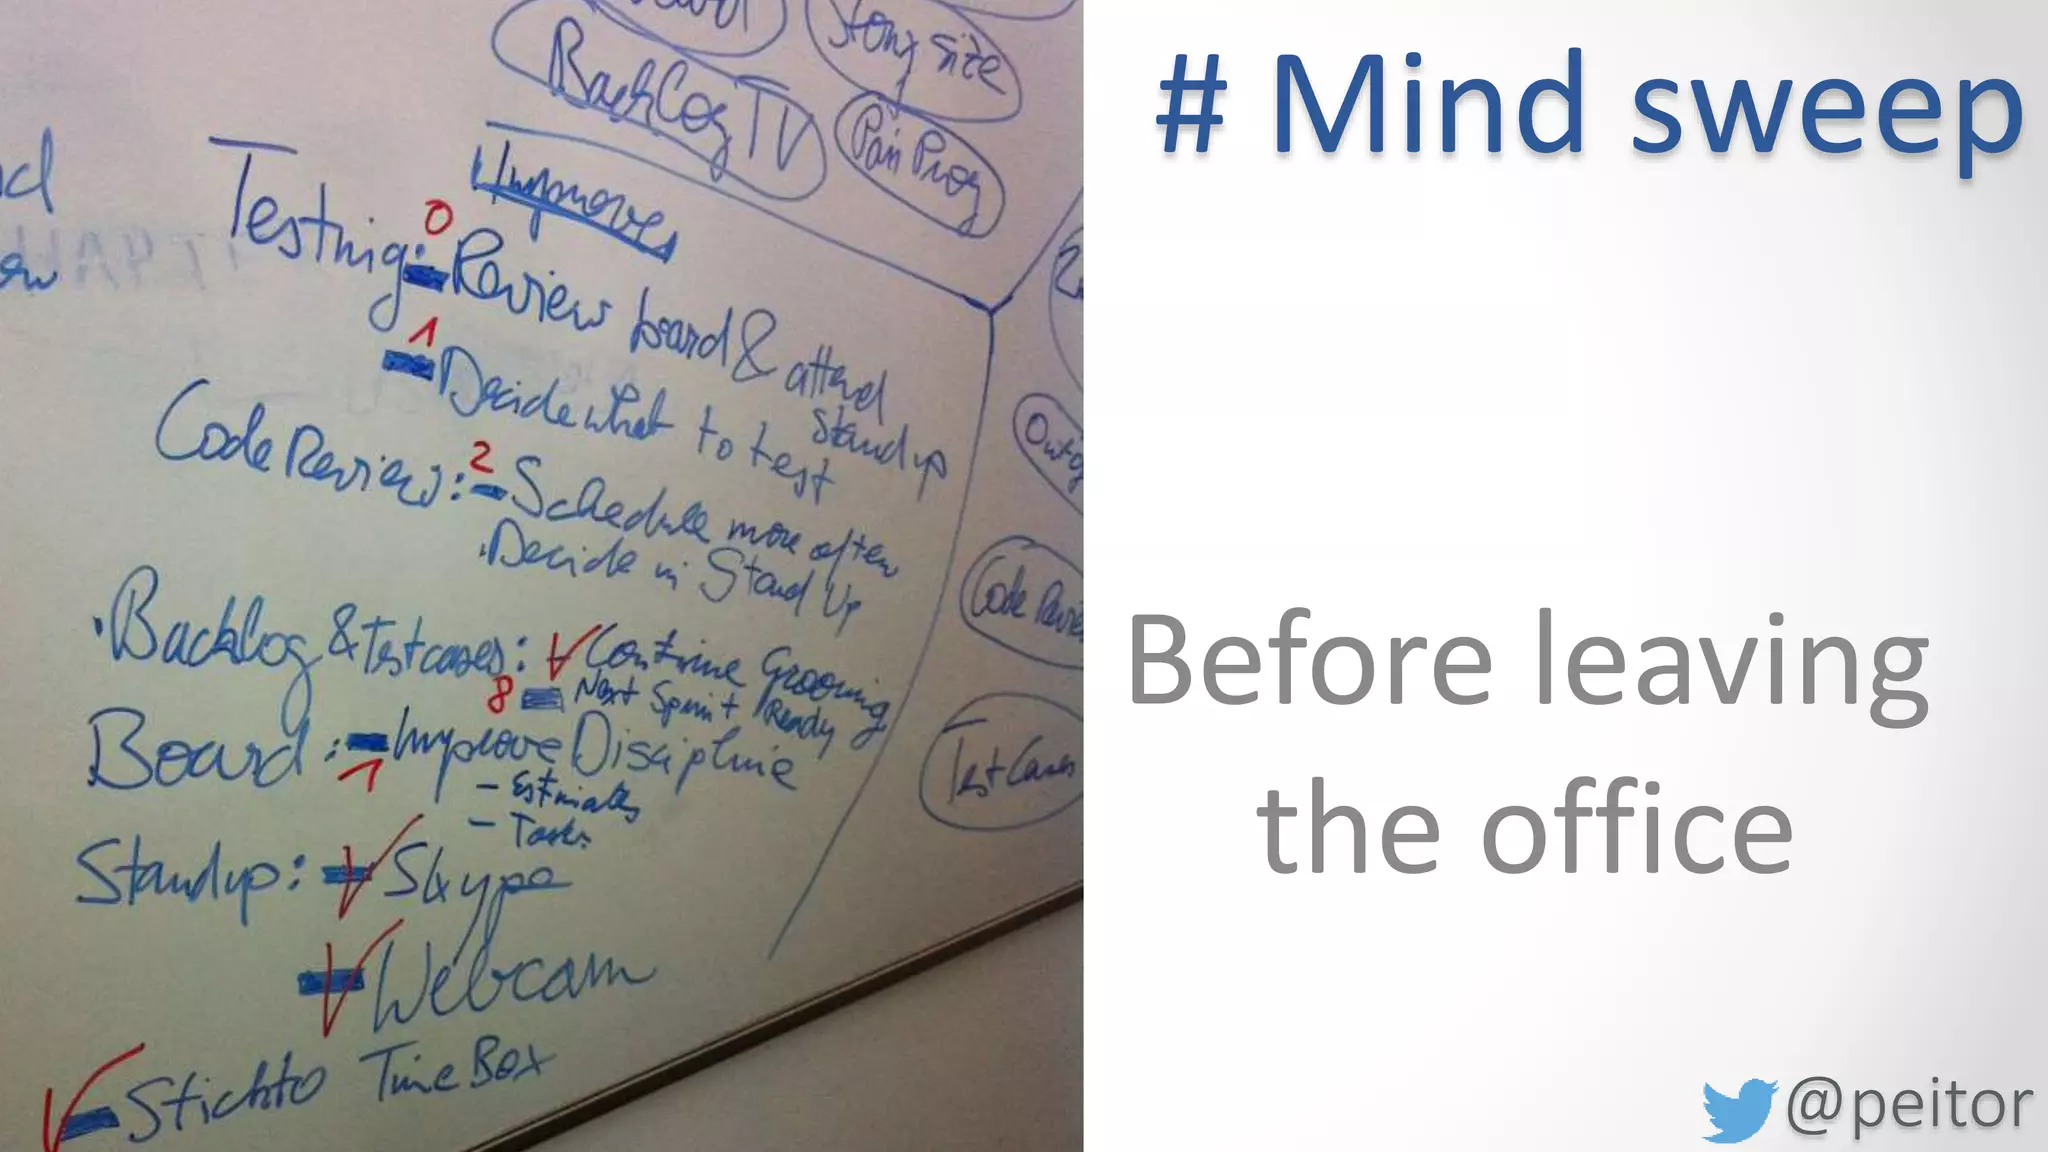 Story Size
BackLog TV
Pair Prog
Improve
Testing:
0
Review board & attend
Standup
1
Decide what to test
Code Review:
2
Schedule more often
Decide in Stand Up
Backlog & Testcases:
Continue Grooming
8
Next Sprint Ready
Board:
1
Improve Discipline
- Estimates
- Tasks
Standup:
Skype
Webcam
Stick to TimeBox
Code Review
Test Cases
# Mind sweep
Before leaving
the office
@peitor